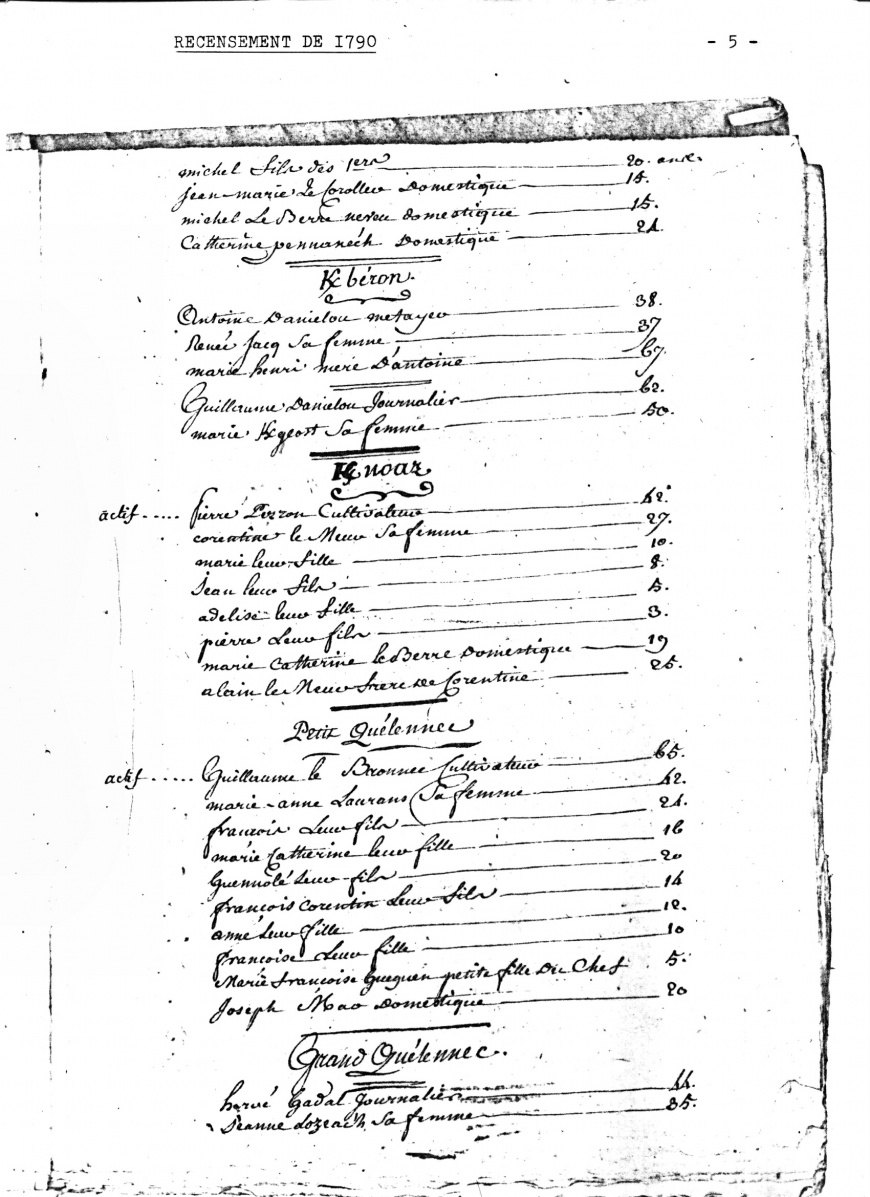 RECENSEMENT DE I790
- 5 -
michel fils des 1ers 20. ans.
jean-marie Le Corolleur Domestique 15.
michel Le Berre neveu domestique 15.
Catherine pennanéch Domestique 21
K béron.
Antoine Danielou metayer 38.
Renée Jacq Sa femme 37
marie henri mere D'antoine 67.
Guillaume Danielou Journalier 62.
marie Kgeost Sa femme 50.
K noaz
actif ..... pierre Pezron Cultivateur 42.
corentine le Meur Sa femme 27.
marie leur fille 10
jean leur fils 8.
adelise leur fille 5.
pierre Leur fils 3.
marie Catherine le Berre Domestique 19
alain le Meur frere De Corentine 25.
Petit Quélennec
actif ..... Guillaume le Bronnec Cultivateur 65.
marie-anne Laurans Sa femme 42.
francois Leur fils 21.
marie Catherine leur fille 16
Guennolé Leur fils 20
françois corentin Leur fils 14
anne Leur fille 12.
francoise Leur fille 10
Marie francoise Gueguen petite fille Du Chef 5.
Joseph Mao Domestique 20
Grand Quélennec.
hervé Gadal Journalier 44.
Jeanne Lozeach Sa femme 35.